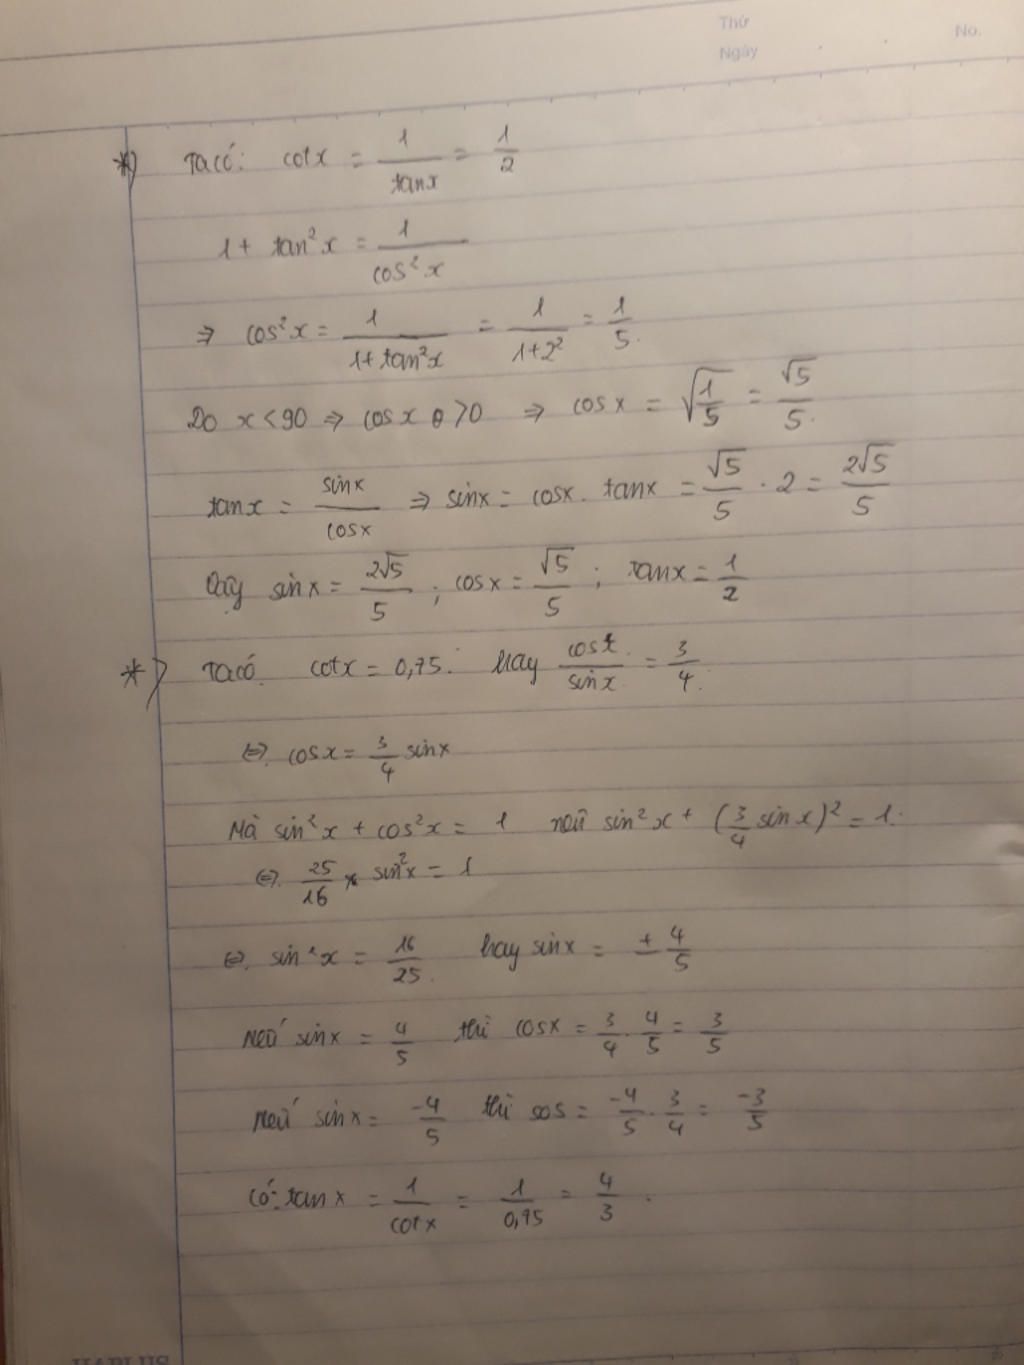 Thứ
Ngày
No.
*) Ta có: cotx = 1/tanx = 1/2
1 + tan²x = 1/cos²x
⇒ cos²x = 1/(1+tan²x) = 1/(1+2²) = 1/5.
Do x < 90 ⇒ cosx θ > 0 ⇒ cosx = √(1/5) = √5/5.
tanx = sinx/cosx ⇒ sinx = cosx. tanx = √5/5 . 2 = 2√5/5
Vậy sinx = 2√5/5 ; cosx = √5/5 ; tanx = 1/2
*) Ta có cotx = 0,75. hay cosx/sinx = 3/4.
⇔ cosx = 3/4 sinx
Mà sin²x + cos²x = 1 nên sin²x + (3/4 sinx)² = 1.
⇔ 25/16 × sin²x = 1
⇔ sin²x = 16/25. hay sinx = ± 4/5
Nếu sinx = 4/5 thì cosx = 3/4 . 4/5 = 3/5
Nếu sinx = -4/5 thì sos = -4/5 . 3/4 = -3/5
Có: tanx = 1/cotx = 1/0,75 = 4/3 .